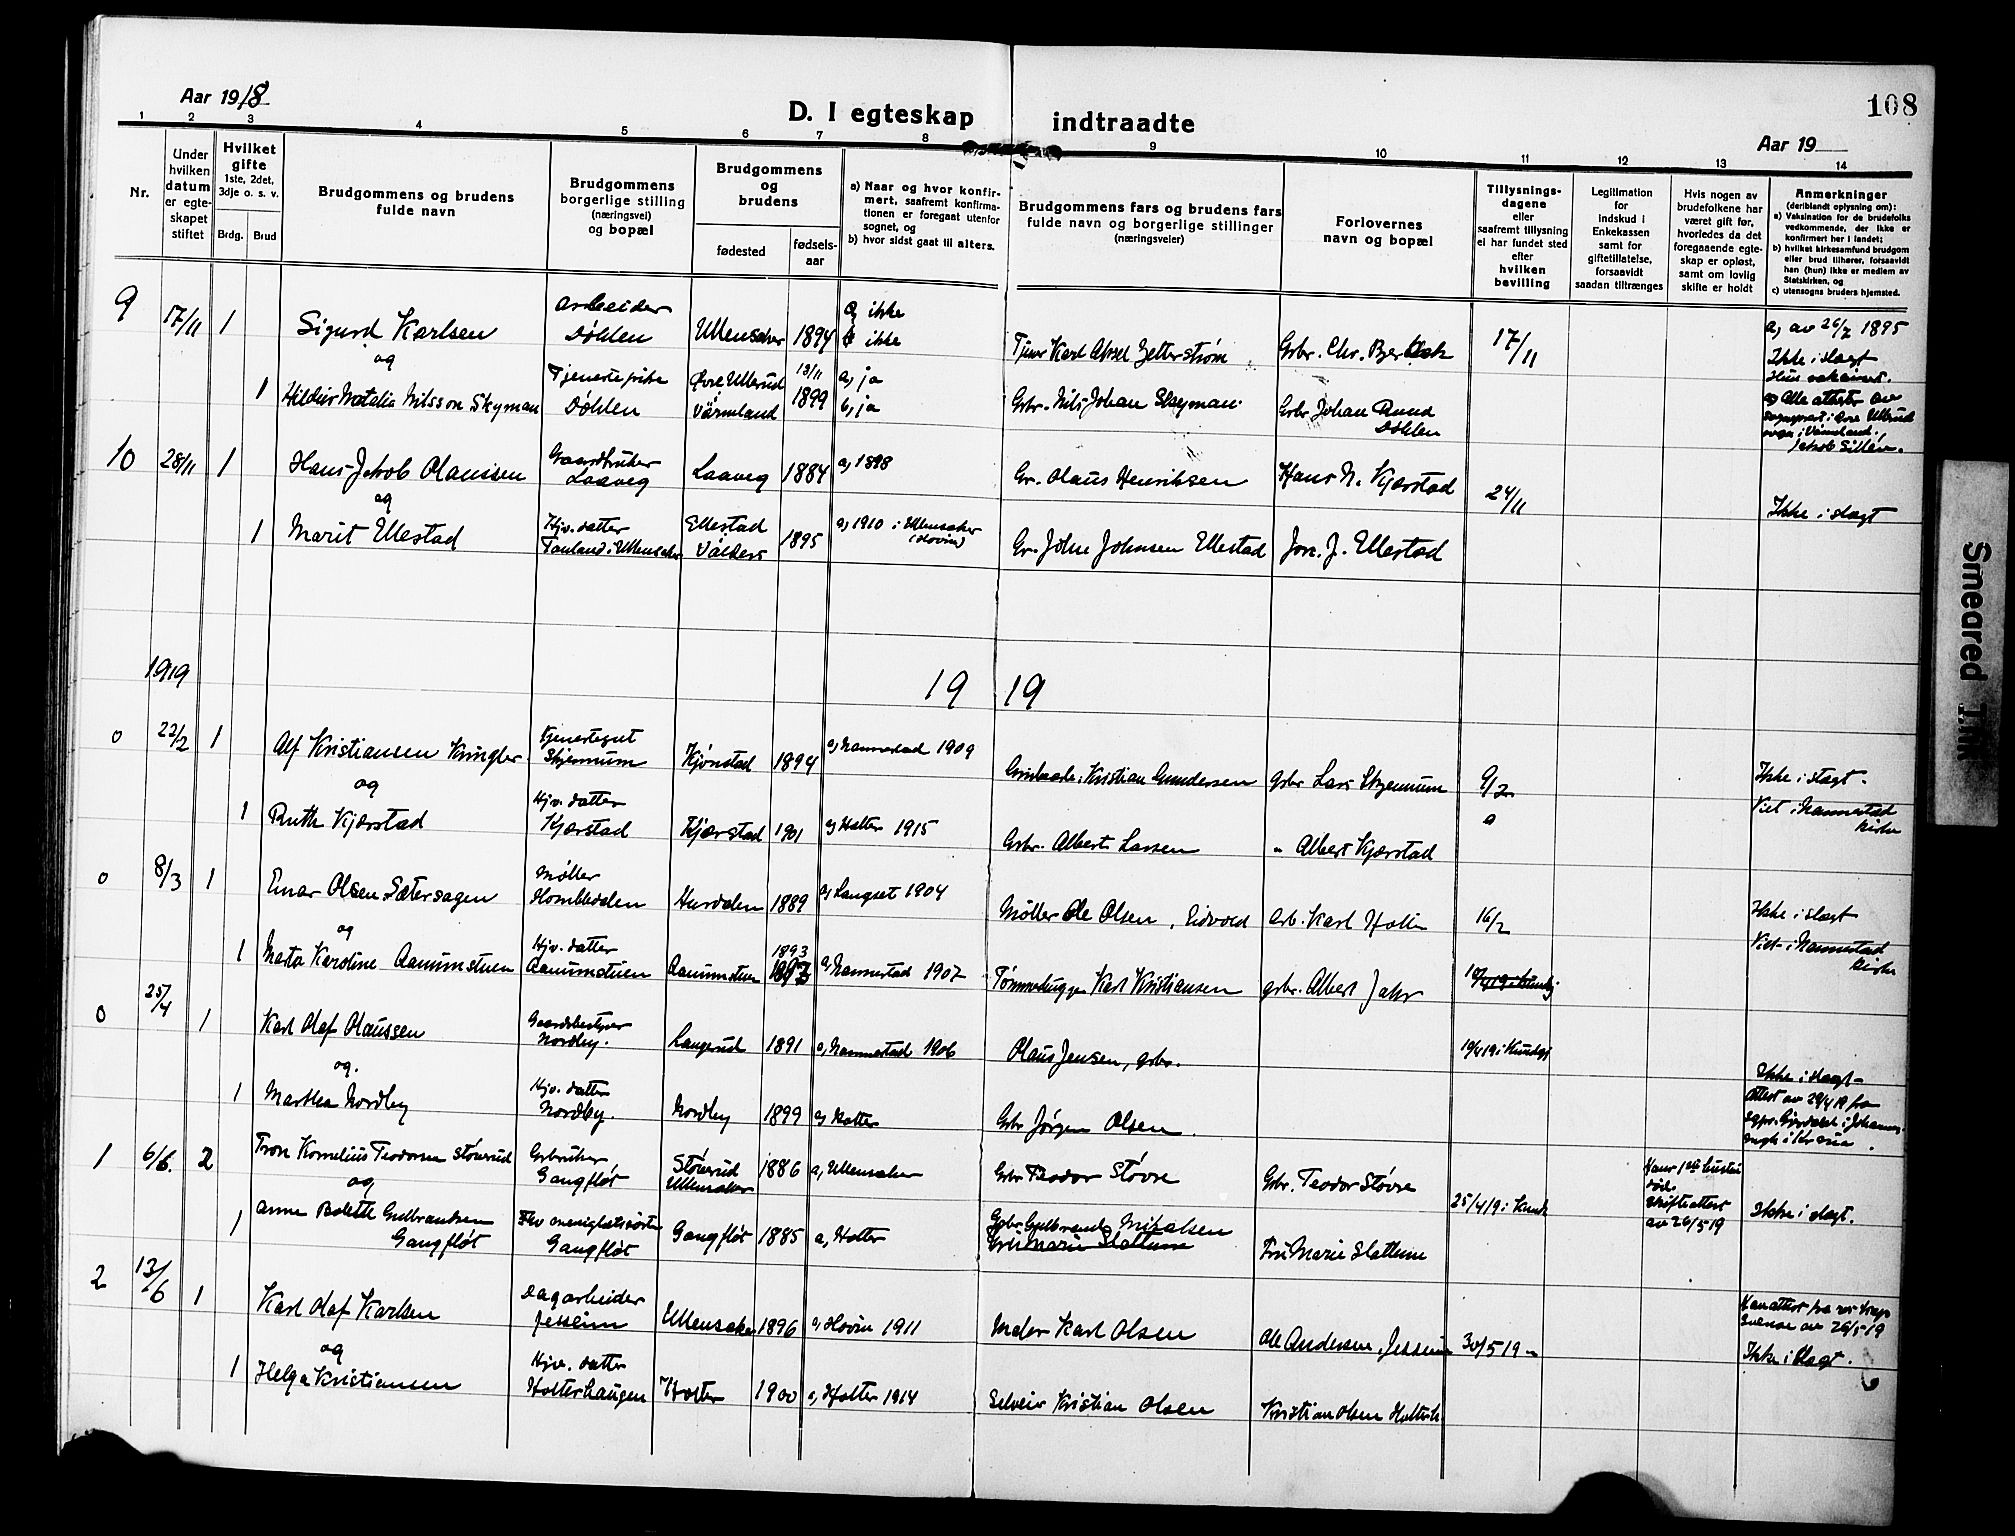 Aar 1918
D. I egteskap indtraadte
108
Aar 19
1 2 3 4 5 6 7 8 9 10 11 12 13 14
Nr.
Under hvilken datum er egteskapet stiftet
Hvilket gifte
1ste, 2det, 3dje o. s. v.
Brdg. Brud
Brudgommens og brudens fulde navn
Brudgommens borgerlige stilling (næringsvei) og bopæl
Brudgommens og brudens
fødested
fødselsaar
a) Naar og hvor konfirmert, saafremt konfirmationen er foregaat utenfor sognet, og
b) hvor sidst gaat til alters.
Brudgommens fars og brudens fars fulde navn og borgerlige stillinger (næringsveier)
Forlovernes navn og bopæl
Tillysningsdagene eller saafremt tillysning ei har fundet sted efter hvilken bevilling
Legitimation for indskud i Enkekassen samt for giftetillatelse, forsaavidt saadan tiltrænges
Hvis nogen av brudefolkene har været gift før, hvorledes da det foregaaende egteskap er opløst, samt om lovlig skifte er holdt
Anmerkninger
(deriblandt oplysning om):
a) Vaksination for de brudefolks vedkommende, der ikke er konfirmert her i landet;
b) hvilket kirkesamfund brudgom eller brud tilhører, forsaavidt han (hun) ikke er medlem av Statskirken, og
c) utensogns bruders hjemsted.
9 17/11 1 Sigurd Karlsen arbeider Døhlen Ullensaker 1894 a, ikke b ikke Karl Aksel Zetterstrøm Gbr. Chr. 17/11 a, av 26/7 1895 Ikke i slagt
og
1 Hildur Natalia Nilsson Skyman Tjenestepike Døhlen Øvre Ullerud Värmland 13/11 1899 a, ja b, ja Gbr. Nils Johan Skyman Gbr Johan Ruud Døhlen
10 28/11 1 Hans Jakob Olaussen Gaardbruker Laaveg Laaveg 1884 a, 1898 Gr. Olaus Henriksen Hans N. Kjærstad 24/11 Ikke i slagt
og
1 Marit Ellestad Hjv. datter i Ullensaker Ellestad Valders 1895 a, 1910 i Ullensaker (Hovin) Gr. John Johnsen Ellestad Jon. J. Ellestad
1919
19 19
0 22/2 1 Alf Kristiansen Kringler Tjenestegut Skjennum Kjønstad 1894 a, Nannestad 1909 Kristian Gundersen gbr Lars Skjennum 9/2 Ikke i slagt.
og
1 Ruth Kjærstad Hjv. datter Kjærstad Kjærstad 1901 a, Holter 1915 Gbr. Albert Larsen " Albert Kjærstad Viet i Nannestad kirke
0 8/3 1 Einar Olsen Sætersagen Møller Hurdalen 1889 a, Langset 1904 Møller Ole Olsen, Eidsvold arb. Karl Holm 16/2 Ikke i slagt
og
1 Marta Karoline Aanumstuen Hjv. datter Aanumstuen Aanumstuen 1893 a, Nannestad 1907 Tømmerhugger Karl Kristiansen gbr. Albert Jahr Viet i Nannestad kirke
0 25/4 1 Karl Olaf Olaussen Gaardsbestyrer Nordby. Langerud 1891 a, Nannestad 1906 Olaus Jensen, gbr. 19/4 19 i Kundgj
og.
1 Marthea Nordby Hjv. datter Nordby. Nordby 1899 a, Holter Gbr Jørgen Olsen. Ikke i slagt
1 6/6. 2 Tron Kornelius Teodorsen Støverud Gbruker Gangfløt Støverud Ullensaker 1886 a, Ullensaker Gbr Teodor Støvre Gbr. Teodor Støvre 25/4 19 i Kund død. Skifteattest av 26/5 19 Ikke i slagt.
og
1 Anna Bolette Gulbrandsen Gangfløt Gangfløt Gangfløt 1885 a, Holter Gbr. Gulbrand Mikalsen Fru Marie Slattum
2 13/6 1 Karl Olaf Karlsen Dagarbeider Jessheim Ullensaker 1896 a, Hovin 1911 Maler Karl Olsen Ole Andersen, Jessheim 30/5 19 Ikke i slagt.
og
1 Helga Kristiansen Hjv. datter Holterhaugen Holter 1900 a, Holter 1914 Selveier Kristian Olsen Kristian Olsen
Smeared Ink